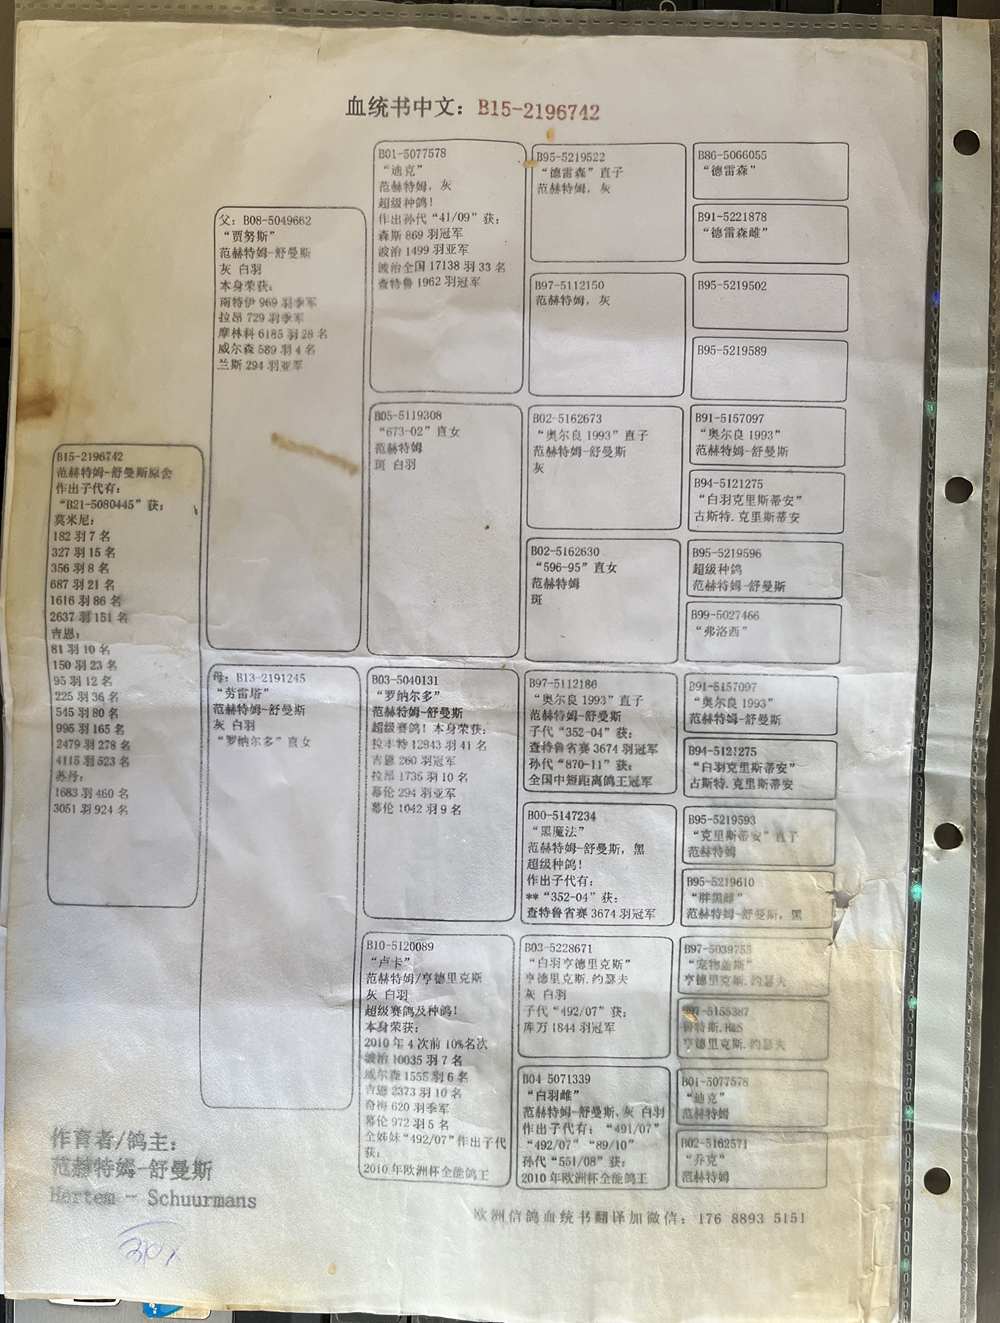 血统书中文：B15-2196742
B15-2196742
范赫特姆-舒曼斯原舍
作出子代有：
“B21-5080445”获：
莫米尼：
182 羽 7 名
327 羽 15 名
356 羽 8 名
687 羽 21 名
1616 羽 86 名
2637 羽 151 名
吉恩：
81 羽 10 名
150 羽 23 名
95 羽 12 名
225 羽 36 名
545 羽 80 名
995 羽 165 名
2479 羽 278 名
4115 羽 523 名
苏丹：
1683 羽 460 名
3051 羽 924 名
父：B08-5049662
“贾努斯”
范赫特姆-舒曼斯
灰 白羽
本身荣获：
南特伊 969 羽季军
拉昂 729 羽季军
摩林科 6185 羽 28 名
威尔森 589 羽 4 名
兰斯 294 羽亚军
母：B13-2191245
“劳雷塔”
范赫特姆-舒曼斯
灰 白羽
“罗纳尔多”直女
B01-5077578
“迪克”
范赫特姆，灰
超级种鸽！
作出孙代“41/09”获：
森斯 869 羽冠军
波治 1499 羽亚军
波治全国 17138 羽 33 名
查特鲁 1962 羽冠军
B05-5119308
“673-02”直女
范赫特姆
斑 白羽
B03-5040131
“罗纳尔多”
范赫特姆-舒曼斯
超级赛鸽！本身荣获：
拉本特 12843 羽 41 名
吉恩 260 羽冠军
拉昂 1736 羽 10 名
慕伦 294 羽亚军
慕伦 1042 羽 9 名
B10-5120089
“卢卡”
范赫特姆/亨德里克斯
灰 白羽
超级赛鸽及种鸽！
本身荣获：
2010 年 4 次前 10%名次
波治 10035 羽 7 名
威尔森 1555 羽 6 名
吉恩 2373 羽 10 名
奇梅 620 羽季军
慕伦 972 羽 5 名
全姊妹“492/07”作出子代
获：
2010 年欧洲杯全能鸽王
B95-5219522
“德雷森”直子
范赫特姆，灰
B97-5112150
范赫特姆，灰
B02-5162673
“奥尔良 1993”直子
范赫特姆-舒曼斯
灰
B02-5162630
“596-95”直女
范赫特姆
斑
B97-5112186
“奥尔良 1993”直子
范赫特姆-舒曼斯
子代“352-04”获：
查特鲁省赛 3674 羽冠军
孙代“870-11”获：
全国中短距离鸽王冠军
B00-5147234
“黑魔法”
范赫特姆-舒曼斯，黑
超级种鸽！
作出子代有：
**“352-04”获：
查特鲁省赛 3674 羽冠军
B03-5228671
“白羽亨德里克斯”
亨德里克斯.约瑟夫
灰 白羽
子代“492/07”获：
库万 1844 羽冠军
B04-5071339
“白羽雌”
范赫特姆-舒曼斯、灰 白羽
作出子代有：“491/07”
“492/07” “89/10”
孙代“551/08”获：
2010 年欧洲杯全能鸽王
B86-5066055
“德雷森”
B91-5221878
“德雷森雌”
B95-5219502
B95-5219589
B91-5157097
“奥尔良 1993”
范赫特姆-舒曼斯
B94-5121275
“白羽克里斯蒂安”
古斯特.克里斯蒂安
B95-5219596
超级种鸽
范赫特姆-舒曼斯
B99-5027466
“弗洛西”
B91-5157097
“奥尔良 1993”
范赫特姆-舒曼斯
B94-5121275
“白羽克里斯蒂安”
古斯特.克里斯蒂安
B95-5219593
“克里斯蒂安”直子
范赫特姆
B95-5219610
“胖黑雌”
范赫特姆-舒曼斯，黑
B97-5039755
“宠物盖斯”
亨德里克斯.约瑟夫
B97-5155387
鲁特斯.H&S
亨德里克斯.约瑟夫
B01-5077578
“迪克”
范赫特姆
B02-5162571
“乔克”
范赫特姆
作育者/鸽主：
范赫特姆-舒曼斯
Hertem - Schuurmans
欧洲信鸽血统书翻译加微信：176 8893 5151